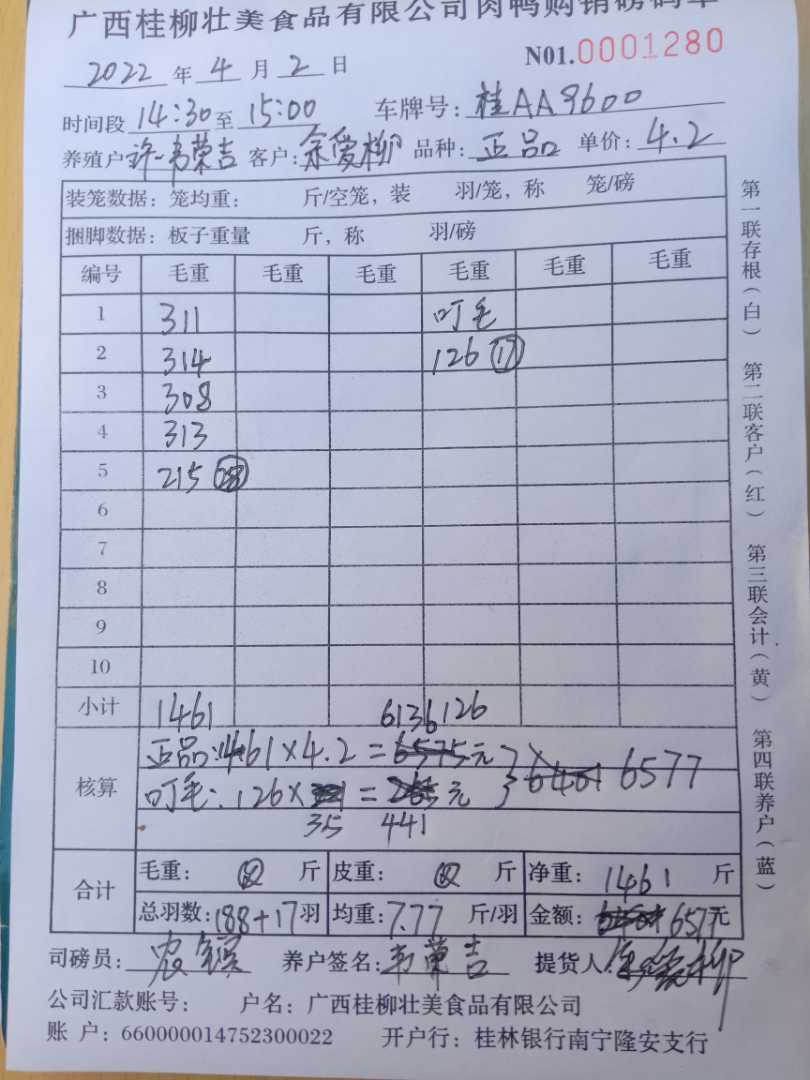 广西桂柳壮美食品有限公司肉鸭购销磅码单
N01.0001280
2022 年 4 月 2 日
时间段 14:30 至 15:00 车牌号: 桂AA9600
养殖户 许-韦荣吉 客户: 余爱柳 品种: 正品 单价: 4.2
装笼数据: 笼均重: 斤/空笼, 装 羽/笼, 称 笼/磅
捆脚数据: 板子重量 斤, 称 羽/磅
编号 毛重 毛重 毛重 毛重 毛重 毛重
1 311 叮毛
2 314 126 (17)
3 308
4 313
5 215
6
7
8
9
10
小计 1461 6136 126
核算
正品: 1461×4.2=元
6577
叮毛: 126× = 元
35 441
合计
毛重: 斤 皮重: 斤 净重: 1461 斤
总羽数: 188+17 羽 均重: 7.77 斤/羽 金额: 6577元
司磅员: 农 养户签名: 韦荣吉 提货人: 余爱柳
公司汇款账号: 户名: 广西桂柳壮美食品有限公司
账 户: 660000014752300022 开户行: 桂林银行南宁隆安支行
第一联存根(白) 第二联客户(红) 第三联会计(黄) 第四联养户(蓝)